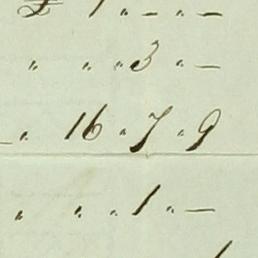 £ 1 " — " —
" " " 3 " —
— " 16 " 7 " 9
" " " 1 " —